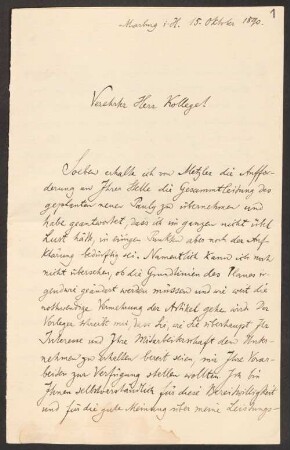 1
Marburg i. H. 15. Oktober 1890.
Verehrter Herr Kollege!
Soeben erhalte ich von Metzler die Auffor-
derung an Ihrer Stelle die Gesammtleitung des
geplanten neuen Pauly zu übernehmen und
habe geantwortet, dass ich im ganzen nicht übel
Lust hätte, in einigen Punkten aber noch der Auf-
klärung bedürftig sei. Namentlich kann ich noch
nicht übersehen, ob die Grundlinien des Planes ir-
gendwie geändert werden müssen und wie weit die
notwendige Vermehrung der Artikel gehe wird. Der
Verleger schreibt mir, dass Sie, wie Sie überhaupt Ihr
Interesse und Ihre Mitarbeiterschaft dem Unter-
nehmen zu schenken bereit seien, mir Ihre Vorar-
beiten zur Verfügung stellen wollten. Ich bin
Ihnen selbstverständlich für diese Bereitwilligkeit
und für die gute Meinung über meine Leistungs-